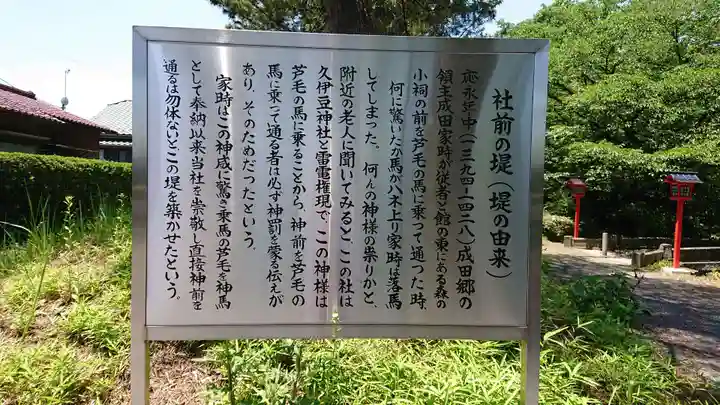 社前の堤(堤の由来)
応永年中(一三九四-一四二八)成田郷の
領主成田家時が従者と館の東にある森の
小祠の前を芦毛の馬に乗って通つた時、
何に驚いたか馬がハネ上り家時は落馬
してしまった。何んの神様の祟りかと、
附近の老人に聞いてみると、この社は
久伊豆神社と雷電権現で、この神様は
芦毛の馬に乗ることから、神前を芦毛の
馬に乗って通る者は必ず神罰を蒙る伝えが
あり、そのためだつたという。
家時はこの神威に驚き乗馬の芦毛を神馬
として奉納以来当社を崇敬し直接神前を
通るは勿体ないとこの堤を築かせたという。